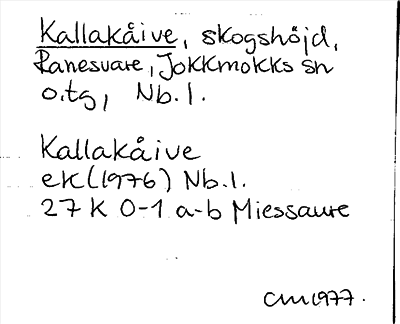 Kallakåive, skogshöjd,
Panesvare, Jokkmokks sn
o.tg, Nb.l.
Kallakåive
ek (1976) Nb.l.
27 K 0-1 a-b Miessaure
CM 1977.